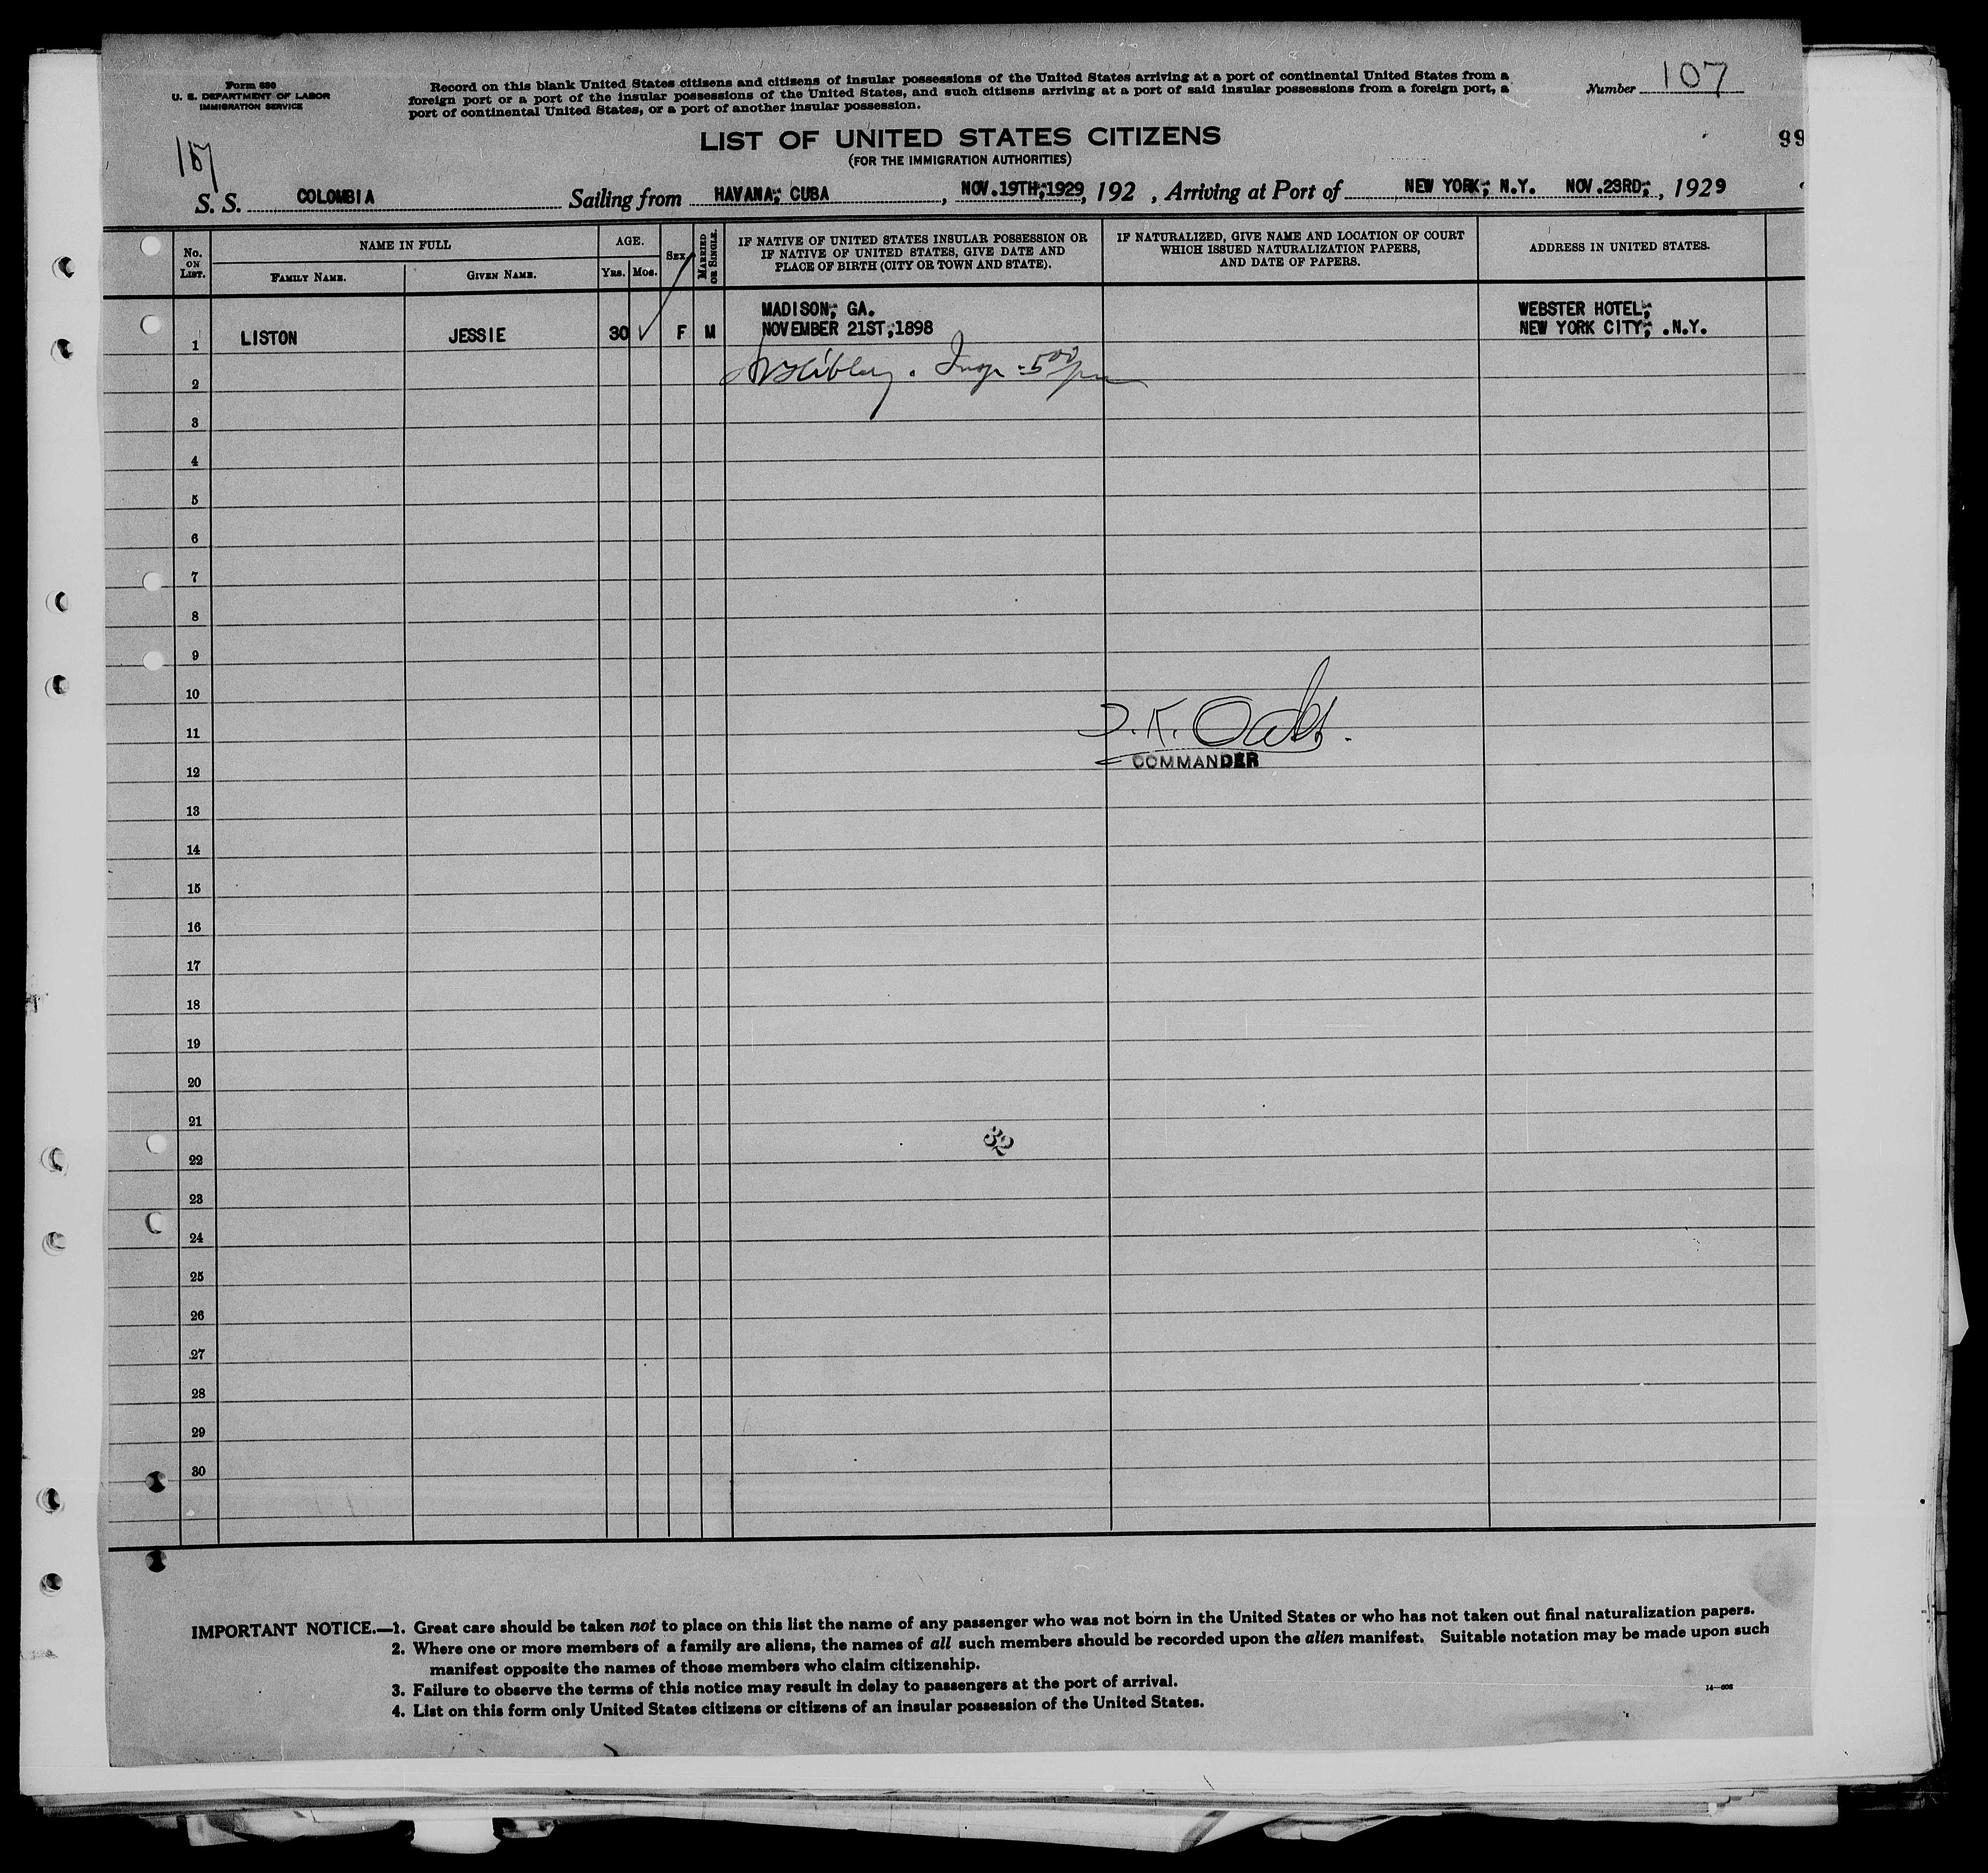 Form 630
U. S. DEPARTMENT OF LABOR
IMMIGRATION SERVICE
Record on this blank United States citizens and citizens of insular possessions of the United States arriving at a port of continental United States from a
foreign port or a port of the insular possessions of the United States, and such citizens arriving at a port of said insular possessions from a foreign port, a
port of continental United States, or a port of another insular possession.
Number 107
107
LIST OF UNITED STATES CITIZENS
99
(FOR THE IMMIGRATION AUTHORITIES)
S. S. COLOMBIA Sailing from HAVANA; CUBA, NOV.19TH;1929, 192 , Arriving at Port of NEW YORK; N.Y. NOV.23RD;, 1929
No. ON LIST.
NAME IN FULL
FAMILY NAME.
GIVEN NAME.
AGE.
YRS.
MOS.
SEX
MARRIED OR SINGLE.
IF NATIVE OF UNITED STATES INSULAR POSSESSION OR
IF NATIVE OF UNITED STATES, GIVE DATE AND
PLACE OF BIRTH (CITY OR TOWN AND STATE).
IF NATURALIZED, GIVE NAME AND LOCATION OF COURT
WHICH ISSUED NATURALIZATION PAPERS,
AND DATE OF PAPERS.
ADDRESS IN UNITED STATES.
MADISON; GA.
WEBSTER HOTEL;
1 LISTON JESSIE 30 F M NOVEMBER 21ST;1898 NEW YORK CITY; .N.Y.
2
3
4
5
6
7
8
9
10
11
D.K.
COMMANDER
12
13
14
15
16
17
18
19
20
21
32
22
23
24
25
26
27
28
29
30
IMPORTANT NOTICE.—1. Great care should be taken not to place on this list the name of any passenger who was not born in the United States or who has not taken out final naturalization papers.
2. Where one or more members of a family are aliens, the names of all such members should be recorded upon the alien manifest. Suitable notation may be made upon such
manifest opposite the names of those members who claim citizenship.
3. Failure to observe the terms of this notice may result in delay to passengers at the port of arrival.
4. List on this form only United States citizens or citizens of an insular possession of the United States.